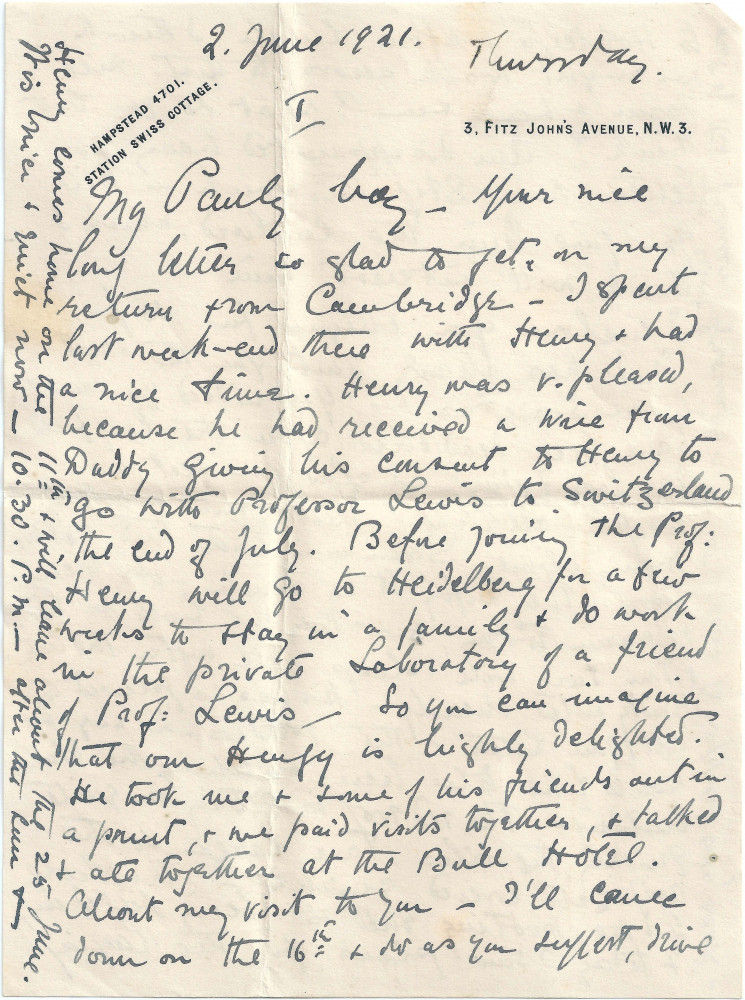 2. June 1921. Thursday.
HAMPSTEAD 4701.
STATION SWISS COTTAGE.
I
3, FITZ JOHN'S AVENUE, N.W. 3.
My Pauly boy – Your nice
long letter so glad to get, on my
return from Cambridge – I spent
last week-end there with Henry & had
a nice time. Henry was v. pleased,
because he had received a wire from
Daddy giving his consent to Henry to
go with Professor Lewis to Switzerland
the end of July. Before joining the Prof:
Henry will go to Heidelberg for a few
weeks to stay in a family & do work
in the private Laboratory of a friend
of Prof: Lewis – So you can imagine
that our Henry is highly delighted.
He took me & some of his friends out in
a punt, & we paid visits together, & talked
& ate together at the Bull Hotel.
About my visit to you – I'll come
down on the 16th & do as you suggest, drive
Henry comes home on the 11th & will leave about the 25 June.
It is nice & quiet now – 10.30. P.M. – after the